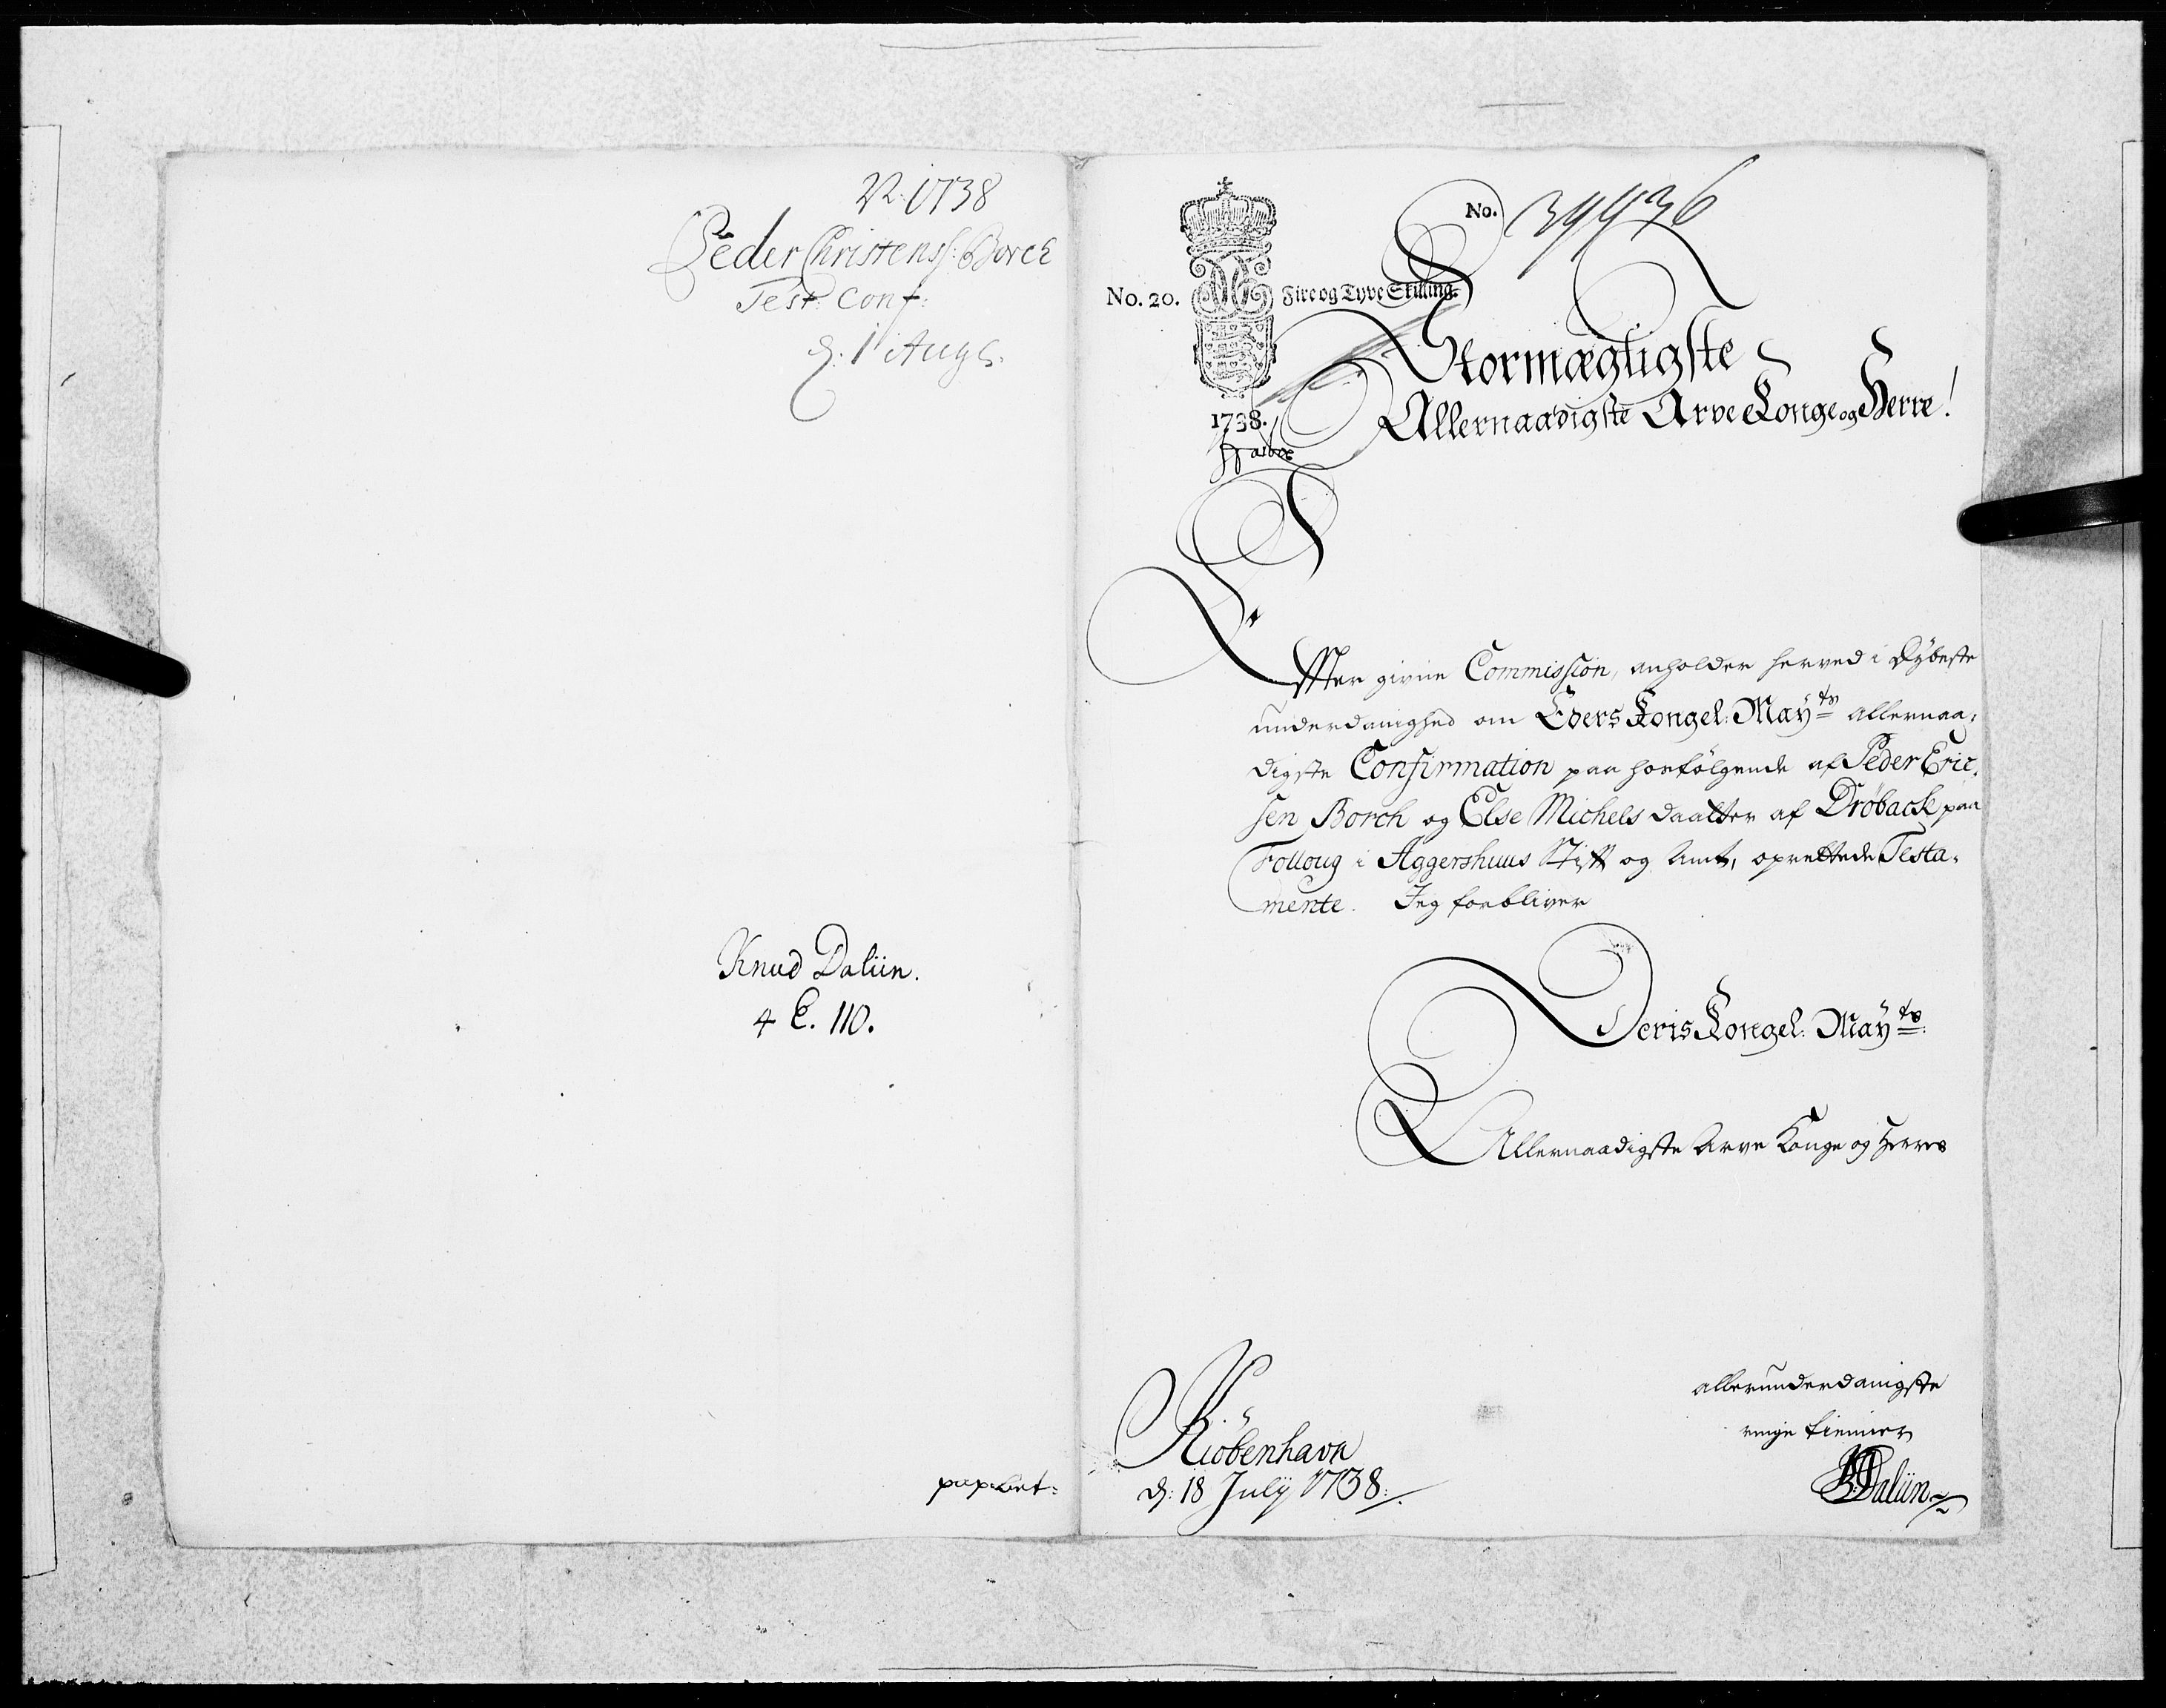 N. 1738
Peder Christens: Borck
Test: Conf:
d. 1 Aug:
Knud Daliin.
4 E. 110.
papiret:
No. 39936
No. 20. Fire og Tyve Skilling.
1738.
Stormægtigste
Allernaadigste Arve Konge og Herre!
Effter givne Commission, anholder herved i dybeste
underdanighed om Eders Kongel: Mayts allernaa,
digste Confirmation paa hosfölgende af Peder Eric,
sen Borch og Else Michels daatter af Dröback paa
Folloug i Aggershuus Stift og Amt, oprettede Testa,
mente. Jeg forbliver
Deris Kongel: Mayts:
Allernaadigste Arve Konge og Herres
Kiöbenhavn
d: 18 July 1738.
allerunderdanigste
ringe tienner
Daliin